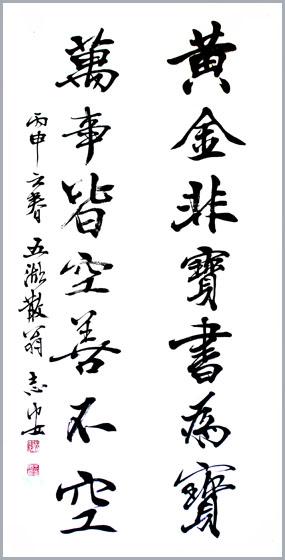 黃金非寶書為寶
萬事皆空善不空
丙申之春 五湖散翁 志安